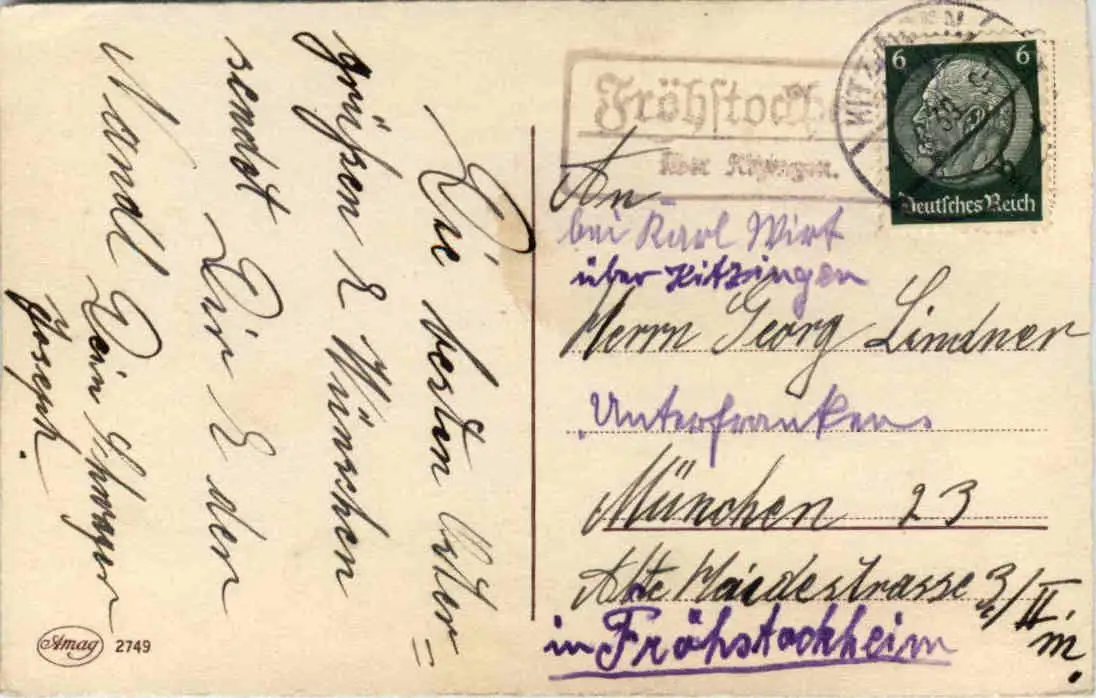 Die besten Oster=
grüßen & Wünschen
sendet Dir & den
Dein Schwager
Joseph.
Amag 2749
Fröhstockh
über Kitzingen.
KITZINGEN
6 6
Deutsches Reich
An
bei Karl Wirt
über Kitzingen
Herrn Georg Lindner
Unterfranken.
München 23
Alte Haidestrasse 3/II
in Fröhstockheim